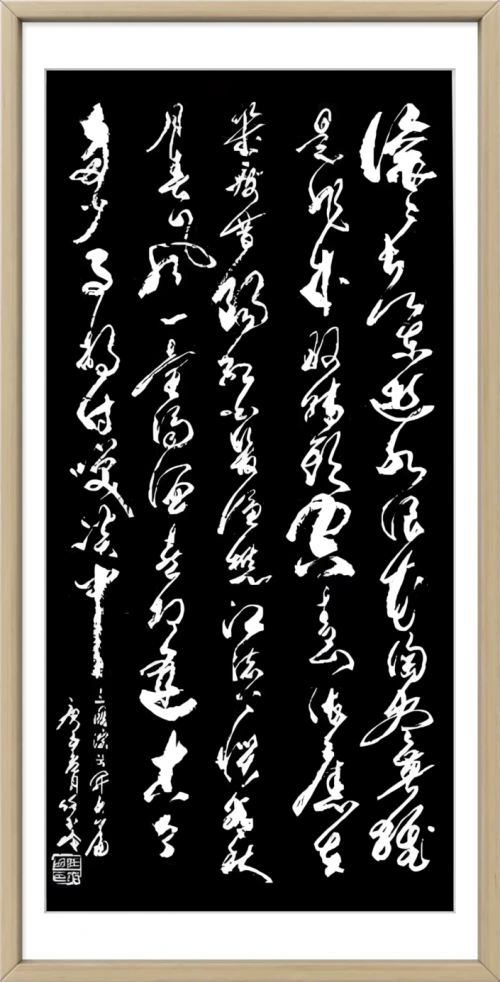 滚滚长江东逝水浪花淘尽英雄
是非成败转头空青山依旧在
几度夕阳红白发渔樵江渚上惯看秋
月春风一壶浊酒喜相逢古今
多少事都付笑谈中
三國演义开卷篇
庚子月